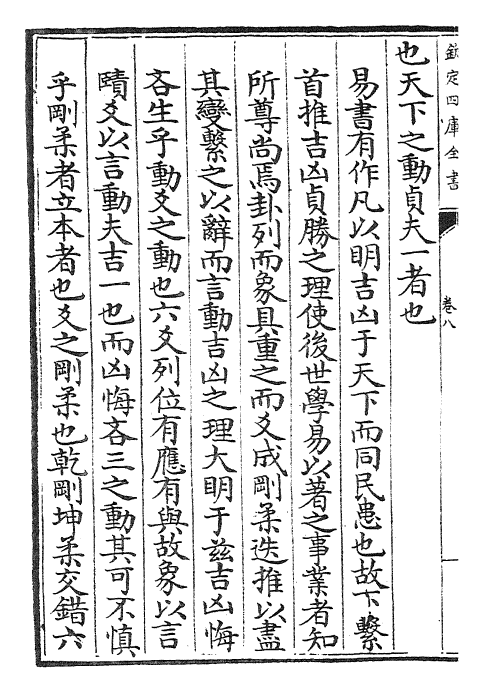 欽定四庫全書
卷八
也天下之動貞夫一者也
易書有作凡以明吉凶于天下而同民患也故下繫
首推吉凶貞勝之理使後世學易以著之事業者知
所尊尚焉卦列而象具重之而爻成剛柔迭推以盡
其變繫之以辭而言動吉凶之理大明于兹吉凶悔
吝生乎動爻之動也六爻列位有應有與故象以言
賾爻以言動夫吉一也而凶悔吝三之動其可不慎
乎剛柔者立本者也爻之剛柔也乾剛坤柔交錯六